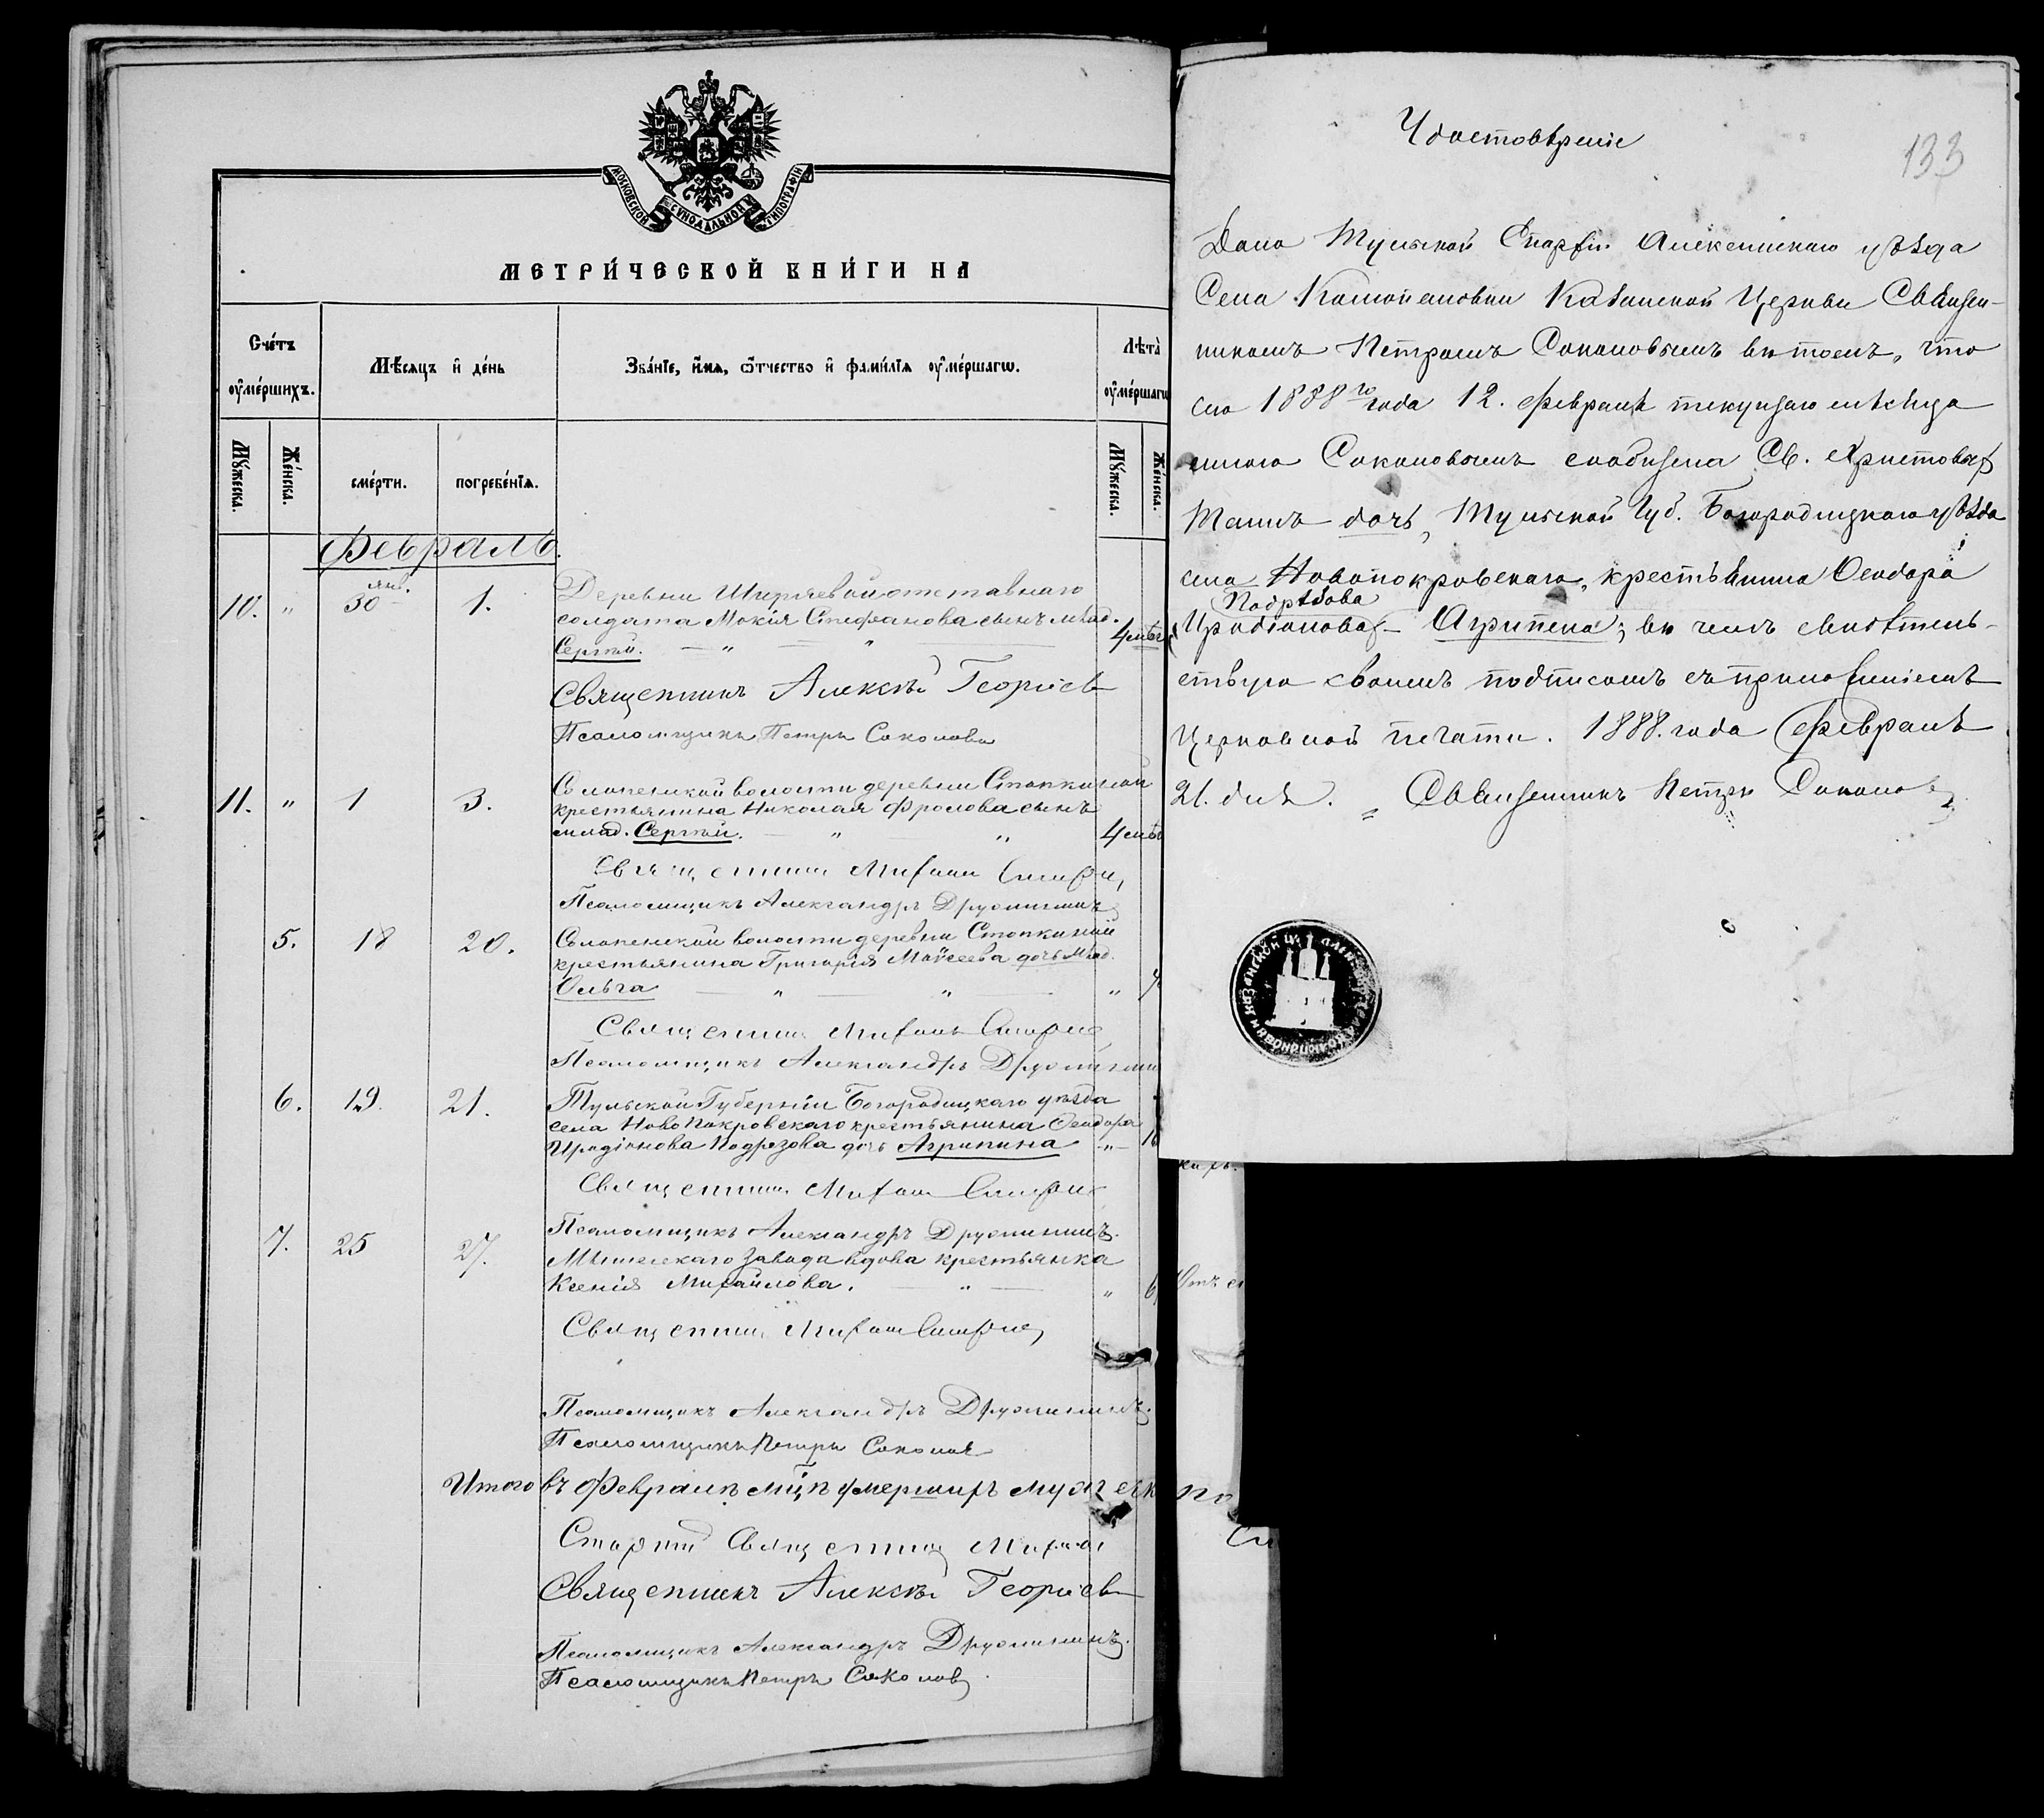 МОСКОВСКОЙ СУНОДАЛЬНОЙ ТИПОГРАФІИ
МЕТРИ́ЧЕСКОЙ КНИ́ГИ НА
Сче́тъ оу҆ме́ршихъ.
Мѣ́сяцъ и҆ де́нь
Зва́ніе, и҆́мя, ѻ҆́тчество и҆ фами́лія оу҆ме́ршагѡ.
Лѣта̀ оу҆ме́ршагѡ
Му́жеска.
Же́нска.
сме́рти.
погребе́нія.
Му́жеска.
Же́нска.
Февраль.
10. " янв. 30 1. Деревни Ширяевой отставнаго
солдата Мокія Стефанова сынъ млад.
Сергѣй. — " — " — 4 мѣс
Священникъ Алексѣй Георгіев
Псаломщикъ Петръ Соколовъ
11. " 1 3. волости деревни Стопкиной
крестьянина Николая Фролова сынъ
млад. Сергѣй. — " " 4 мѣс
Священникъ Михаилъ
Псаломщикъ Александръ Дружининъ
5. 18 20. волости деревни Стопкиной
крестьянина Григорія Моѵсеева дочь млад.
Ольга — " — " — "
Священникъ Михаилъ
Псаломщикъ Александръ Дружинин
6. 19. 21. Тульской Губерніи Богородицкаго уѣзда
села НовоПокровскаго крестьянина Ѳеодора
Иродіонова Подрезова дочь Агрипина — " —
Священникъ Михаилъ
Псаломщикъ Александръ Дружининъ.
7. 25 27. завода вдова крестьянка
Ксенія Михайлова. — " — "
Священникъ Михаилъ
Псаломщикъ Александръ Дружининъ.
Псаломщикъ Петръ Соколов
Итого въ Февралѣ мцѣ умершихъ мужеск
Священникъ Михаил
Священникъ Алексѣй Георгіев
Псаломщикъ Александръ Дружининъ.
Псаломщикъ Петръ Соколов
Удостовѣреніе
133
Дано Тульской Епархіи Алексинскаго уѣзда
Села Казанской Церкви Священ-
никомъ Петромъ Соколовымъ въ томъ, что
сего 1888го года 12. Февраля текущаго мѣсяца
мною Соколовымъ сообщена Св. Христовых
Таинъ дочь, Тульской Губ. Богородицкаго уѣзда
села Новопокровскаго, крестьянина Ѳеодора
Подрѣзова
Иродіонова — Агрипена; въ чемъ свидѣтель-
ствую своимъ подписомъ съ приложеніемъ
Церковной печати. 1888. года Февраля
21. дня. Священникъ Петръ Соколов